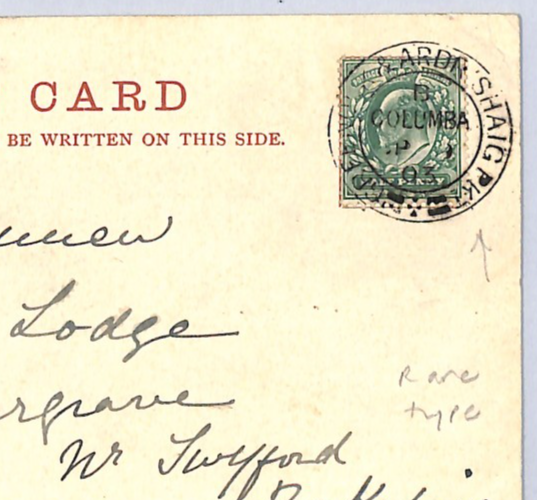 CARD
BE WRITTEN ON THIS SIDE.
& ARDR'SHAIG PKT
B
COLUMBA
03
Lodge
rgrave
Nr Twyford
Rare
type